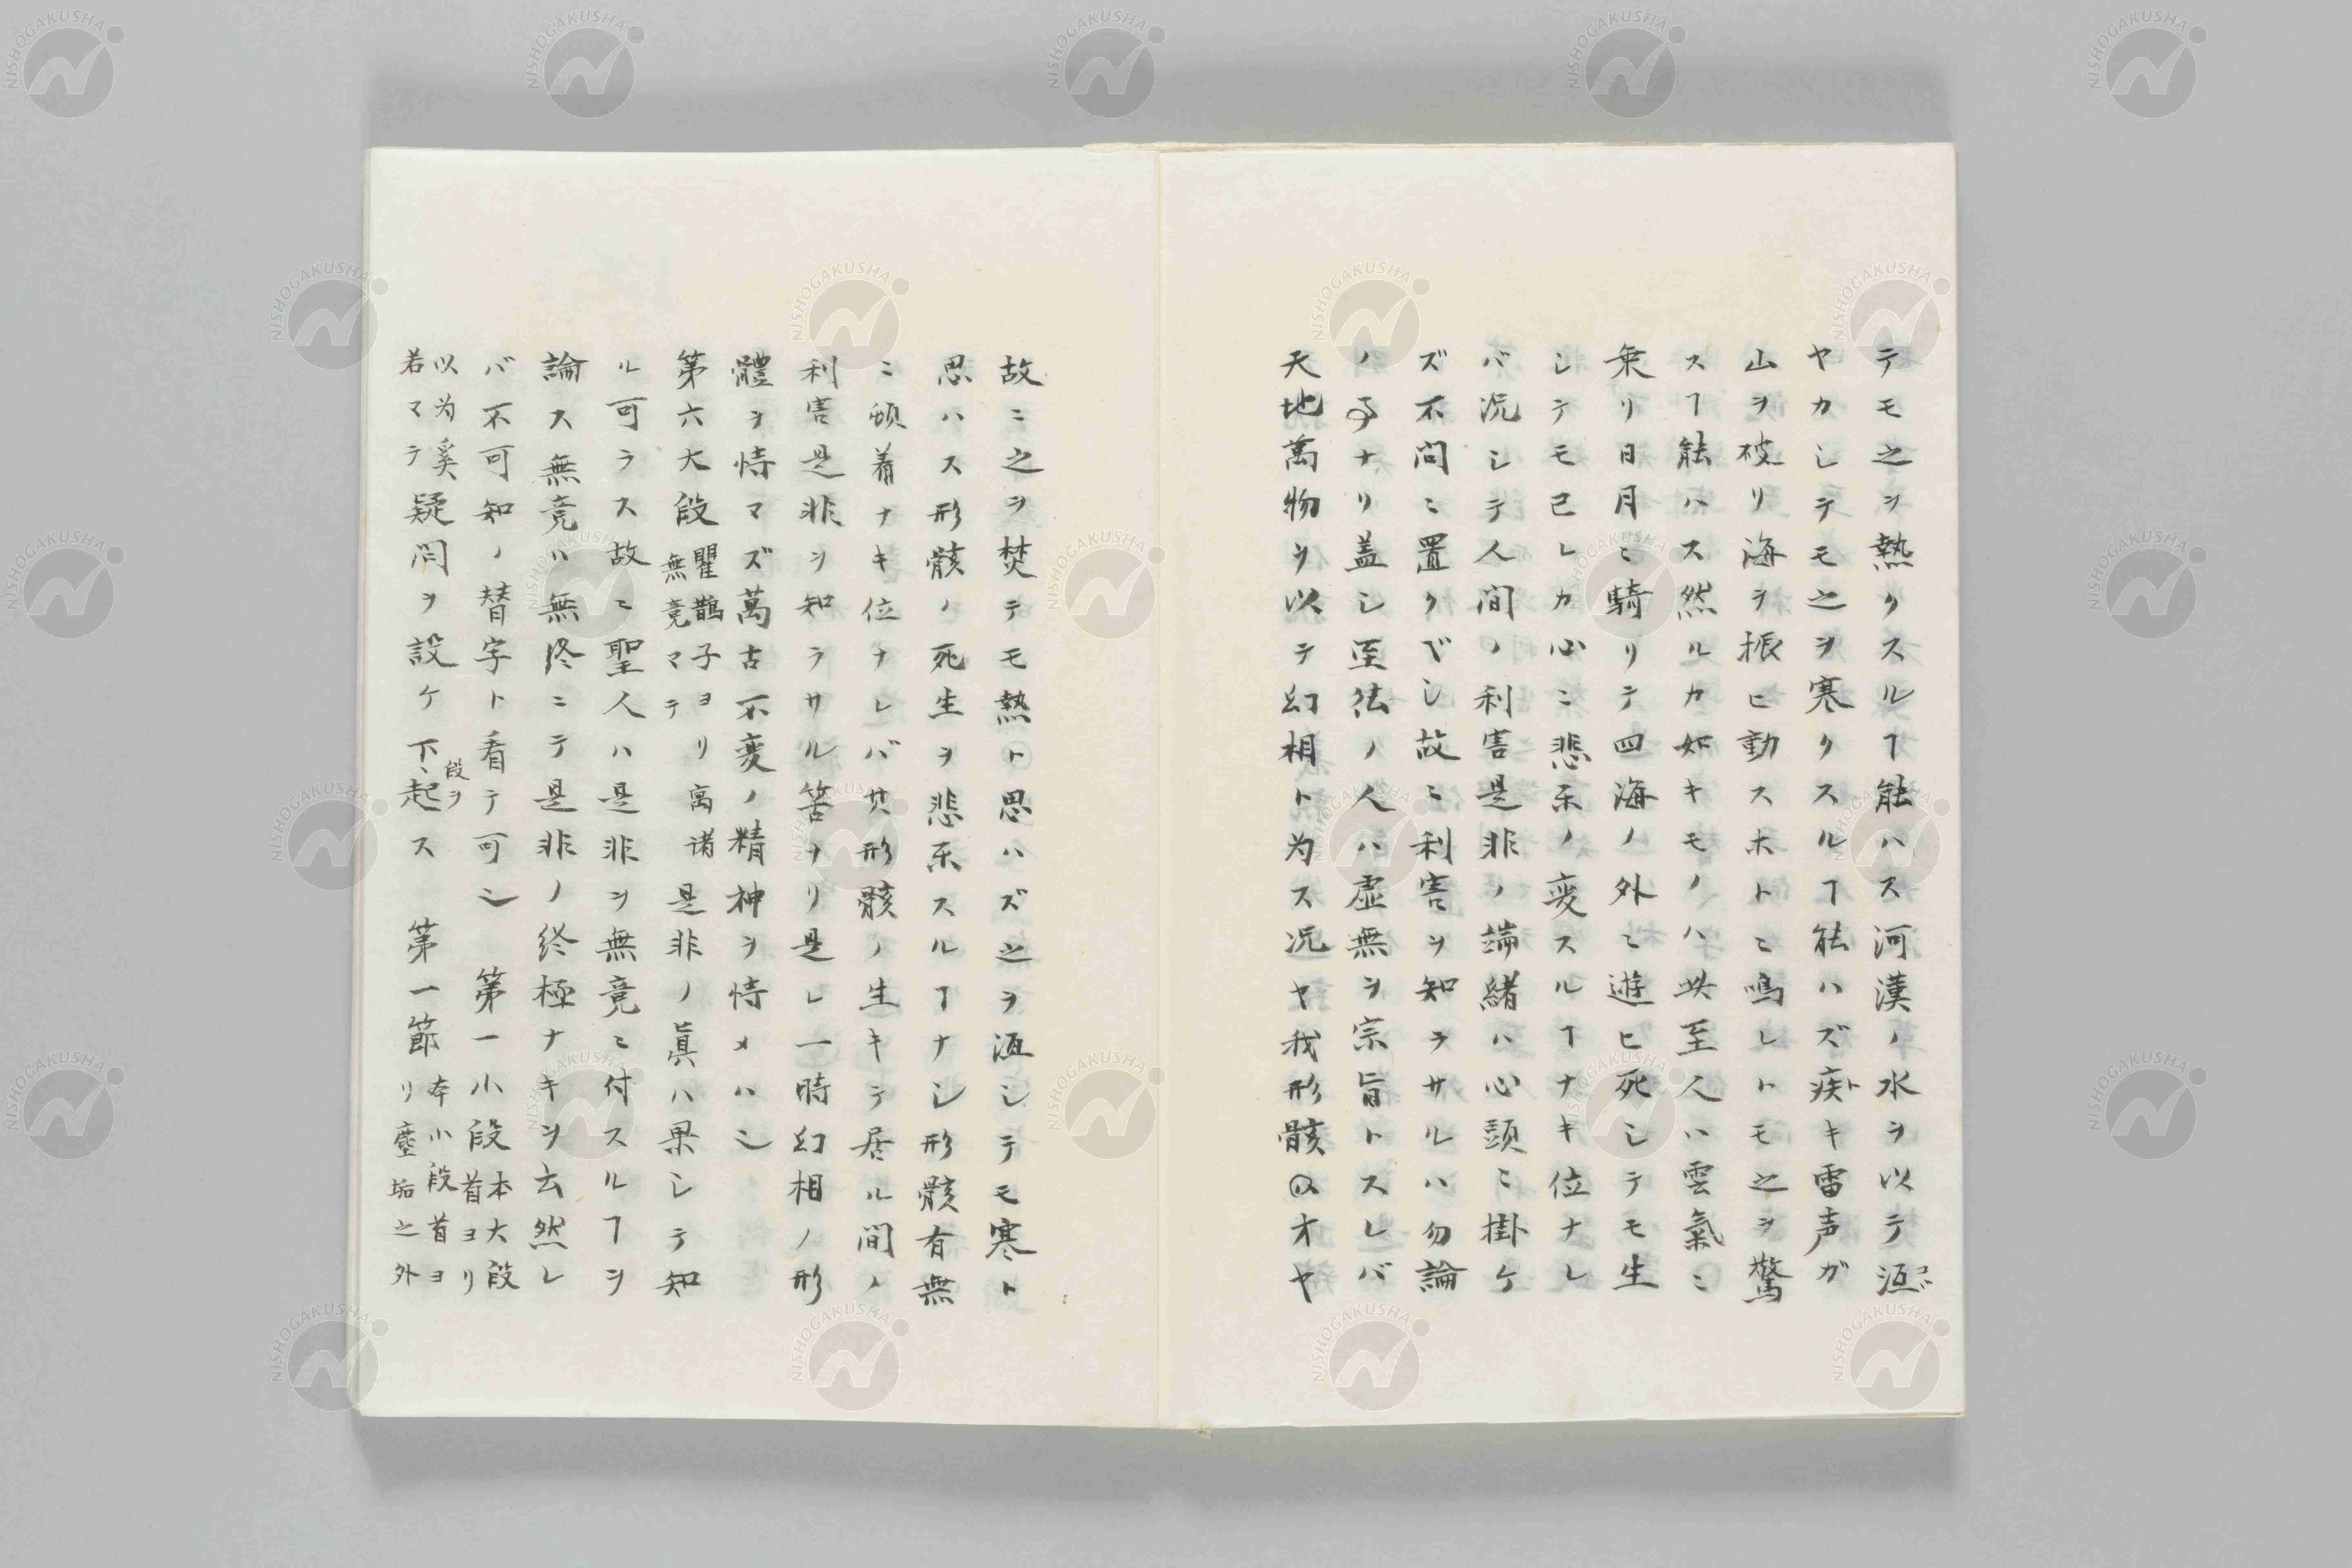 テモ之ヲ熱クスルヿ能ハス河漢ノ水ヲ以テ沍
ヤカシテモ之ヲ寒クスルヿ能ハズ疾キ雷声ガ
山ヲ破リ海ヲ振ヒ動スホトニ鳴レトモ之ヲ驚
スヿ能ハス然ルカ如キモノハ此至人ハ雲氣ニ
乗リ日月ニ騎リテ四海ノ外ニ遊ヒ死シテモ生
シテモ己レカ心ニ悲楽ノ変スルヿナキ位ナレ
バ况シテ人間ノ利害是非ノ端緒ハ心頭ニ掛ケ
ズ不問ニ置クベシ故ニ利害ヲ知ラサルハ勿論
ノ事ナリ盖シ至徳ノ人ハ虚無ヲ宗旨トスレバ
天地萬物ヲ以テ幻相ト为ス况ヤ我形骸ヲオヤ
故ニ之ヲ焚テモ熱ト思ハズ之ヲ沍シテモ寒ト
思ハス形骸ノ死生ヲ悲楽スルヿナシ形骸有無
ニ頓着ナキ位ナレバ其形骸ノ生キテ居ル間ノ
利害是非ヲ知ラサル筈ナリ是レ一時幻相ノ形
體ヲ恃マズ萬古不変ノ精神ヲ恃メハシ
第六大段 瞿鵲子ヨリ 寓諸無竟マテ 是非ノ眞ハ果シテ知
ル可ラス故ニ聖人ハ是非ヲ無竟ニ付スルヿヲ
論ス無竟ハ無終ニテ是非ノ終極ナキヲ云然レ
バ不可知ノ替字ト看テ可シ 第一小段 本大段首ヨリ
以为奚若マテ 疑问ヲ設ケ下段ヲ起ス 第一節 本小段首ヨリ塵垢之外